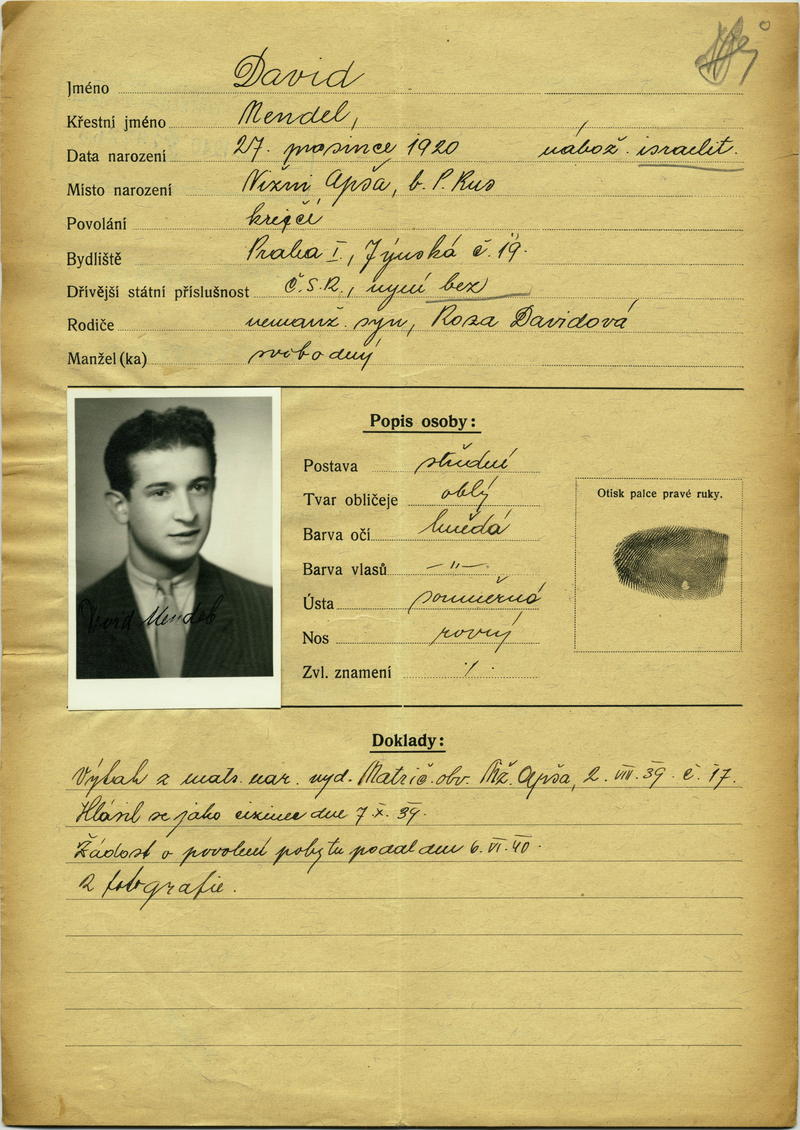 Jméno David
Křestní jméno Mendel,
Data narození 27. prosince 1920 nábož. israelit.
Místo narození Nižní Apša, b. P. Rus
Povolání krejčí
Bydliště Praha I., Týnská č. 19.
Dřívější státní příslušnost Č.S.R., nyní bez
Rodiče nemanž. syn, Rosa Davidová
Manžel (ka) svobodný
Popis osoby:
Postava střední
Tvar obličeje oblý
Barva očí hnědá
Barva vlasů -"-
Ústa souměrná
Nos rovný
Zvl. znamení /.
Otisk palce pravé ruky.
David Mendel
Doklady:
Výtah z matr. nar. vyd. Matrič. obv. Niž. Apša, 2. VIII. 39. č. 17.
Hlásil se jako cizinec dne 7. X. 39.
Žádost o povolení pobytu podal dne 6. VI. 40.
2 fotografie.